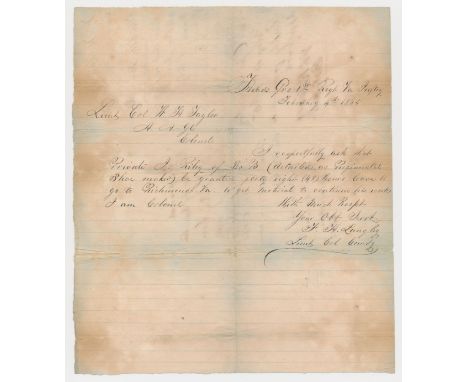 Head Qrs 1st Regt Va Infty
February 4th 1865
Lieut Col W H Taylor
A A Gl
Colonel
I respectfully ask that
Private J. Riley of Co B (detailed as Regimental
Shoe maker) be granted forty eight (48) hours leave to
go to Richmond Va to get material to continue his work
I am Colonel
With Much Respt
Your Obt Servt
F. H. Langley
Lieut Col Comdg